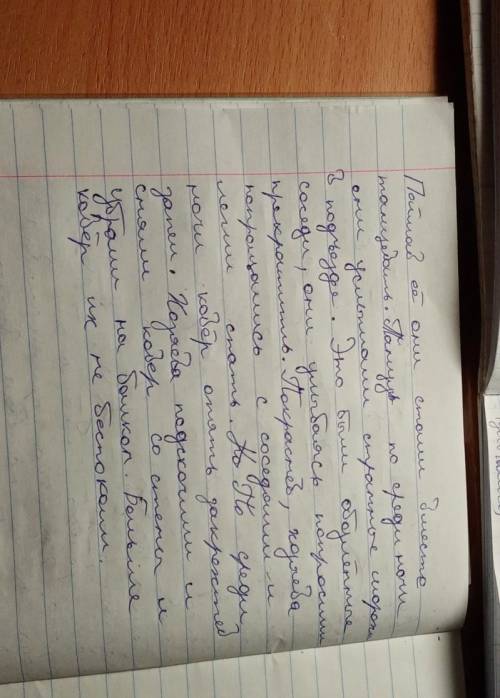 Поймав её они стали вместе
танцевать. Танцуя по среди ночи
они услышали странные шорохи
в подъезде. Это были обозлённые
соседи, они улыбаясь попросили
прекратить. Покраснев, хозяева
попрощались с соседями и
легли спать. Но по среди
ночи ковёр опять закряхтев
запел. Хозяева подскочили и
сняли ковер со стены и
убрали на балкон. Больше
ковёр их не беспокоил.